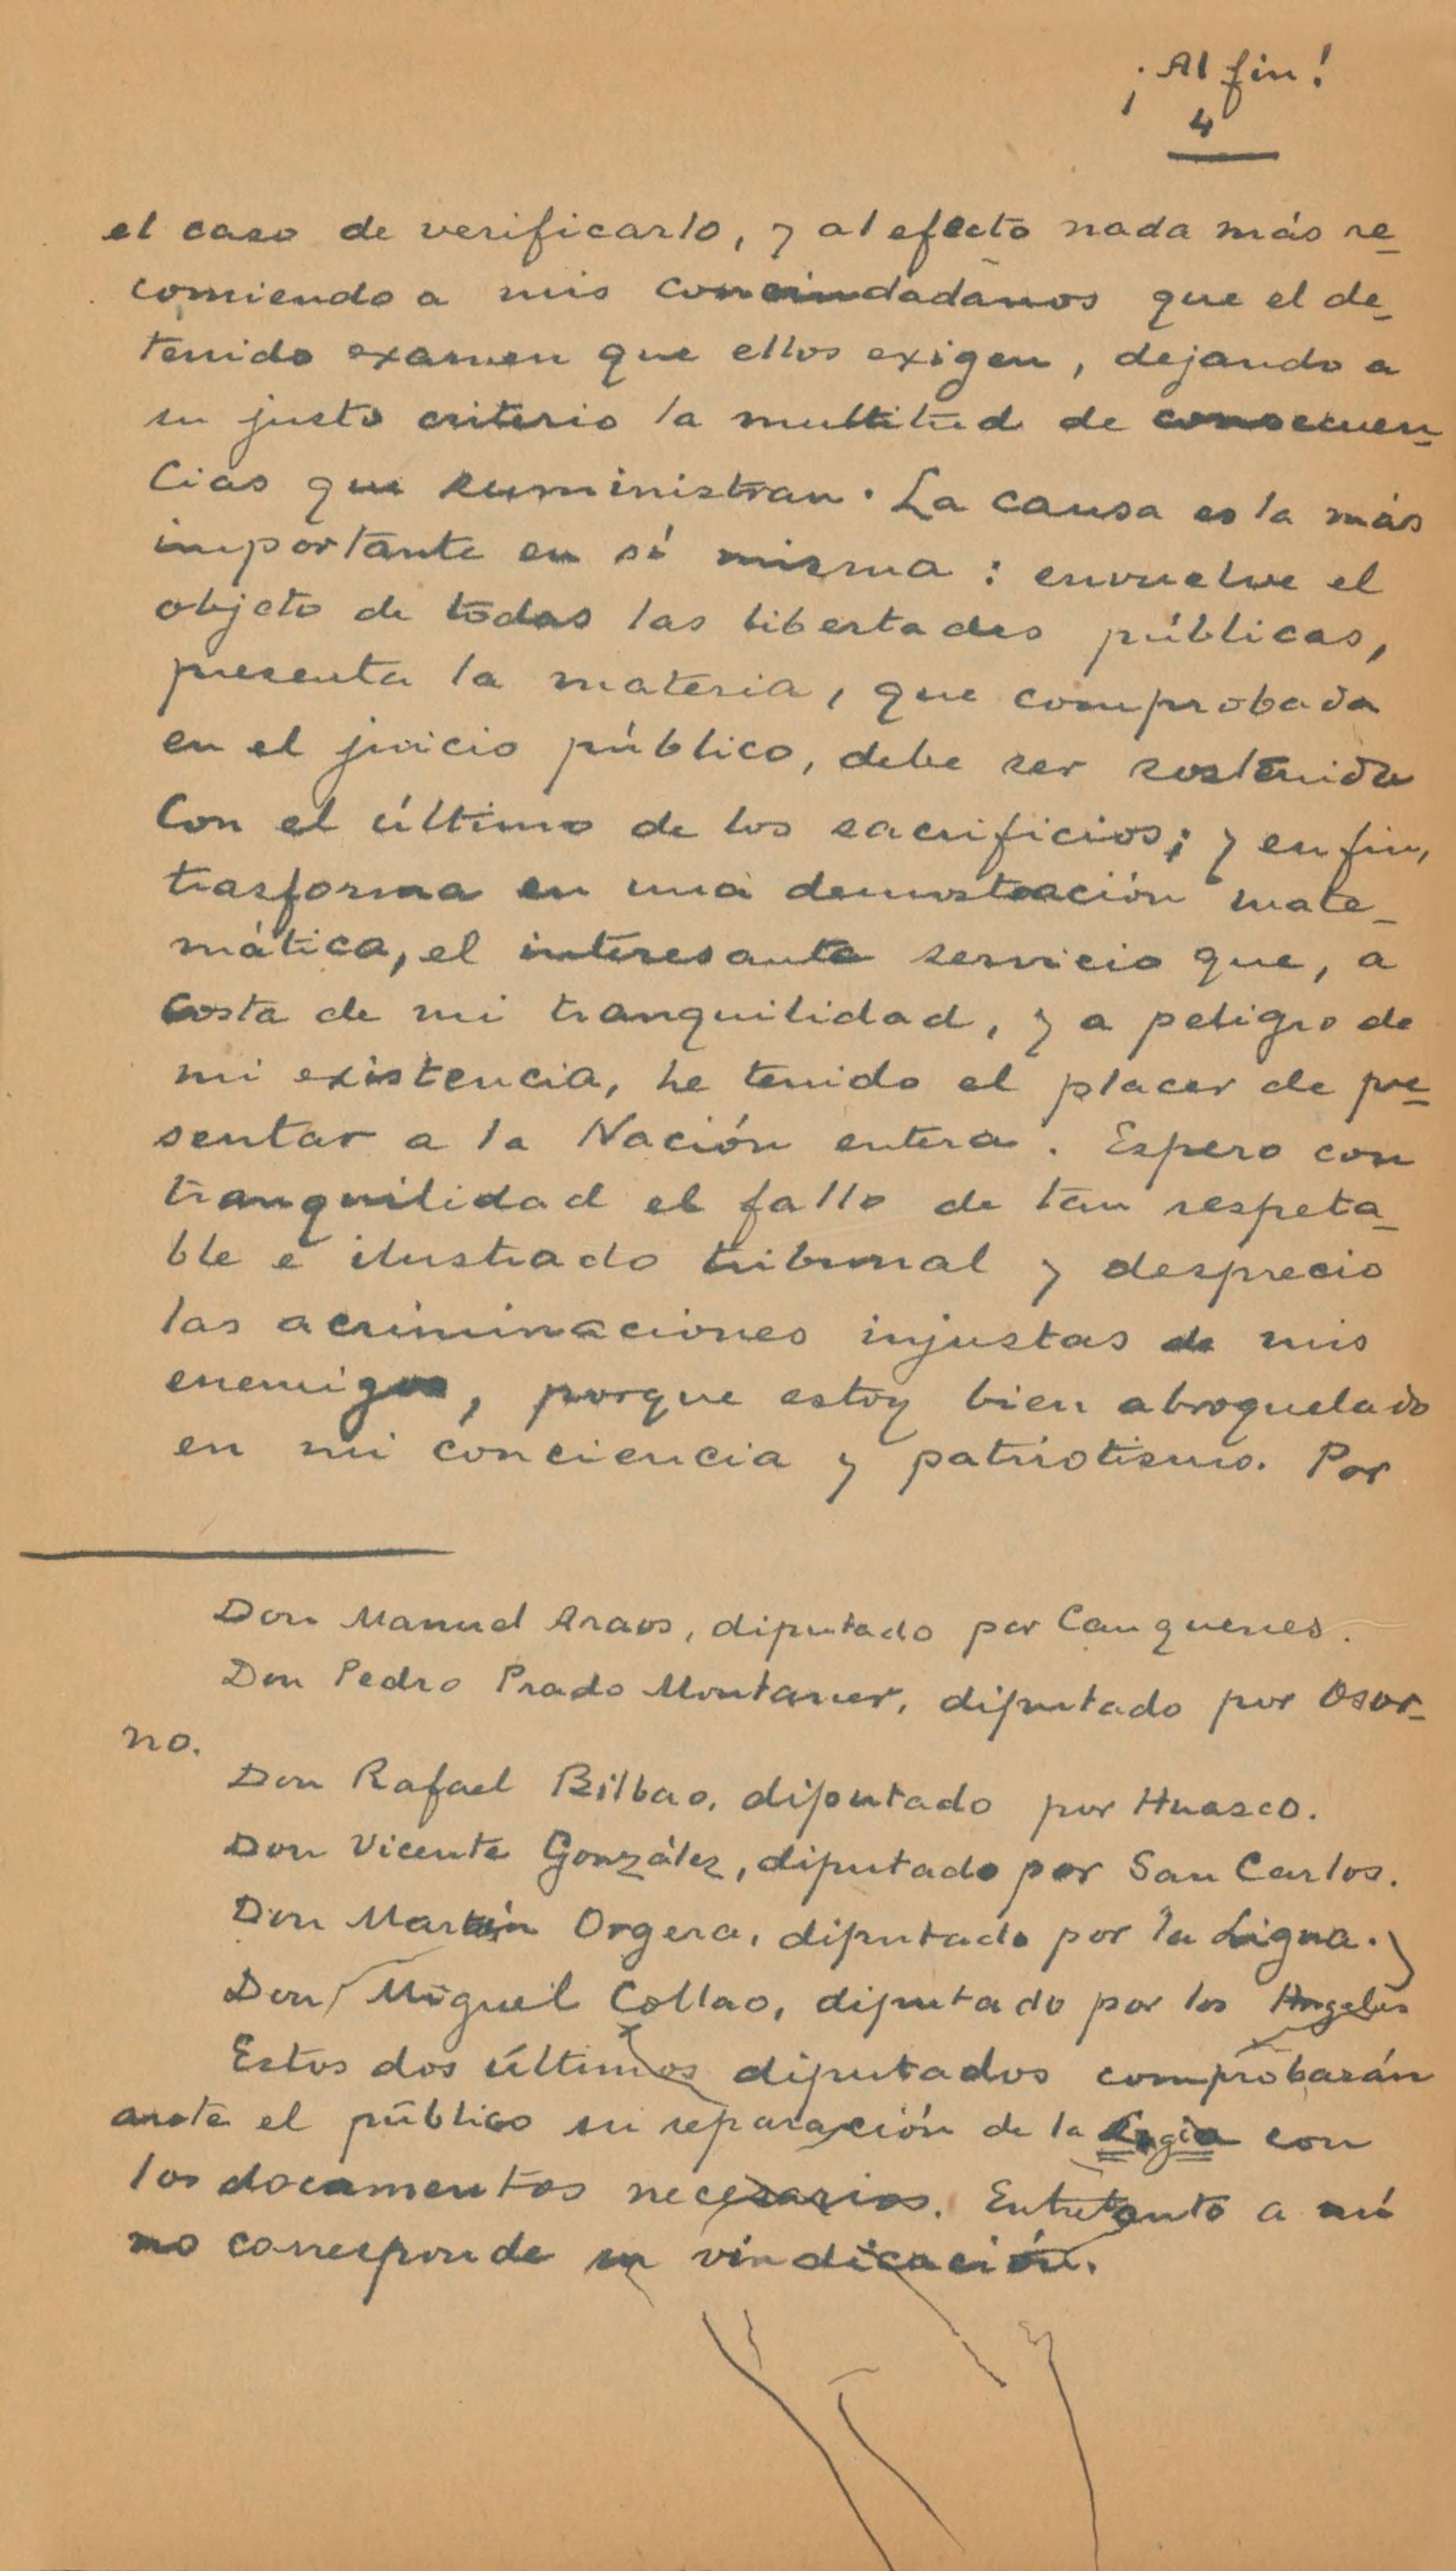 ¡Al fin!
4
el caso de verificarlo, y al efecto nada más re-
comiendo a mis conciudadanos que el de-
tenido examen que ellos exigen, dejando a
su justo criterio la multitud de consecuen-
cias que suministran. La causa es la más
importante en sí misma: envuelve el
objeto de todas las libertades públicas,
presenta la materia, que comprobada
en el juicio público, debe ser sostenida
con el último de los sacrificios; y en fin,
trasforma en una demostración mate-
mática, el interesante servicio que, a
costa de mi tranquilidad, y a peligro de
mi existencia, he tenido el placer de pre-
sentar a la Nación entera. Espero con
tranquilidad el fallo de tan respeta-
ble e ilustrado tribunal y desprecio
las acriminaciones injustas de mis
enemigos, porque estoy bien abroquelado
en mi conciencia y patriotismo. Por
Don Manuel Araos, diputado por Cauquenes.
Don Pedro Prado Montaner, diputado por Osor-
no.
Don Rafael Bilbao, diputado por Huasco.
Don Vicente González, diputado por San Carlos.
Don Martín Orgera, diputado por la Ligua.
Don Miguel Collao, diputado por los Angeles
Estos dos últimos diputados comprobarán
ante el público su separación de la Logia con
los documentos necesarios. Entretanto a mí
no corresponde su vindicación.